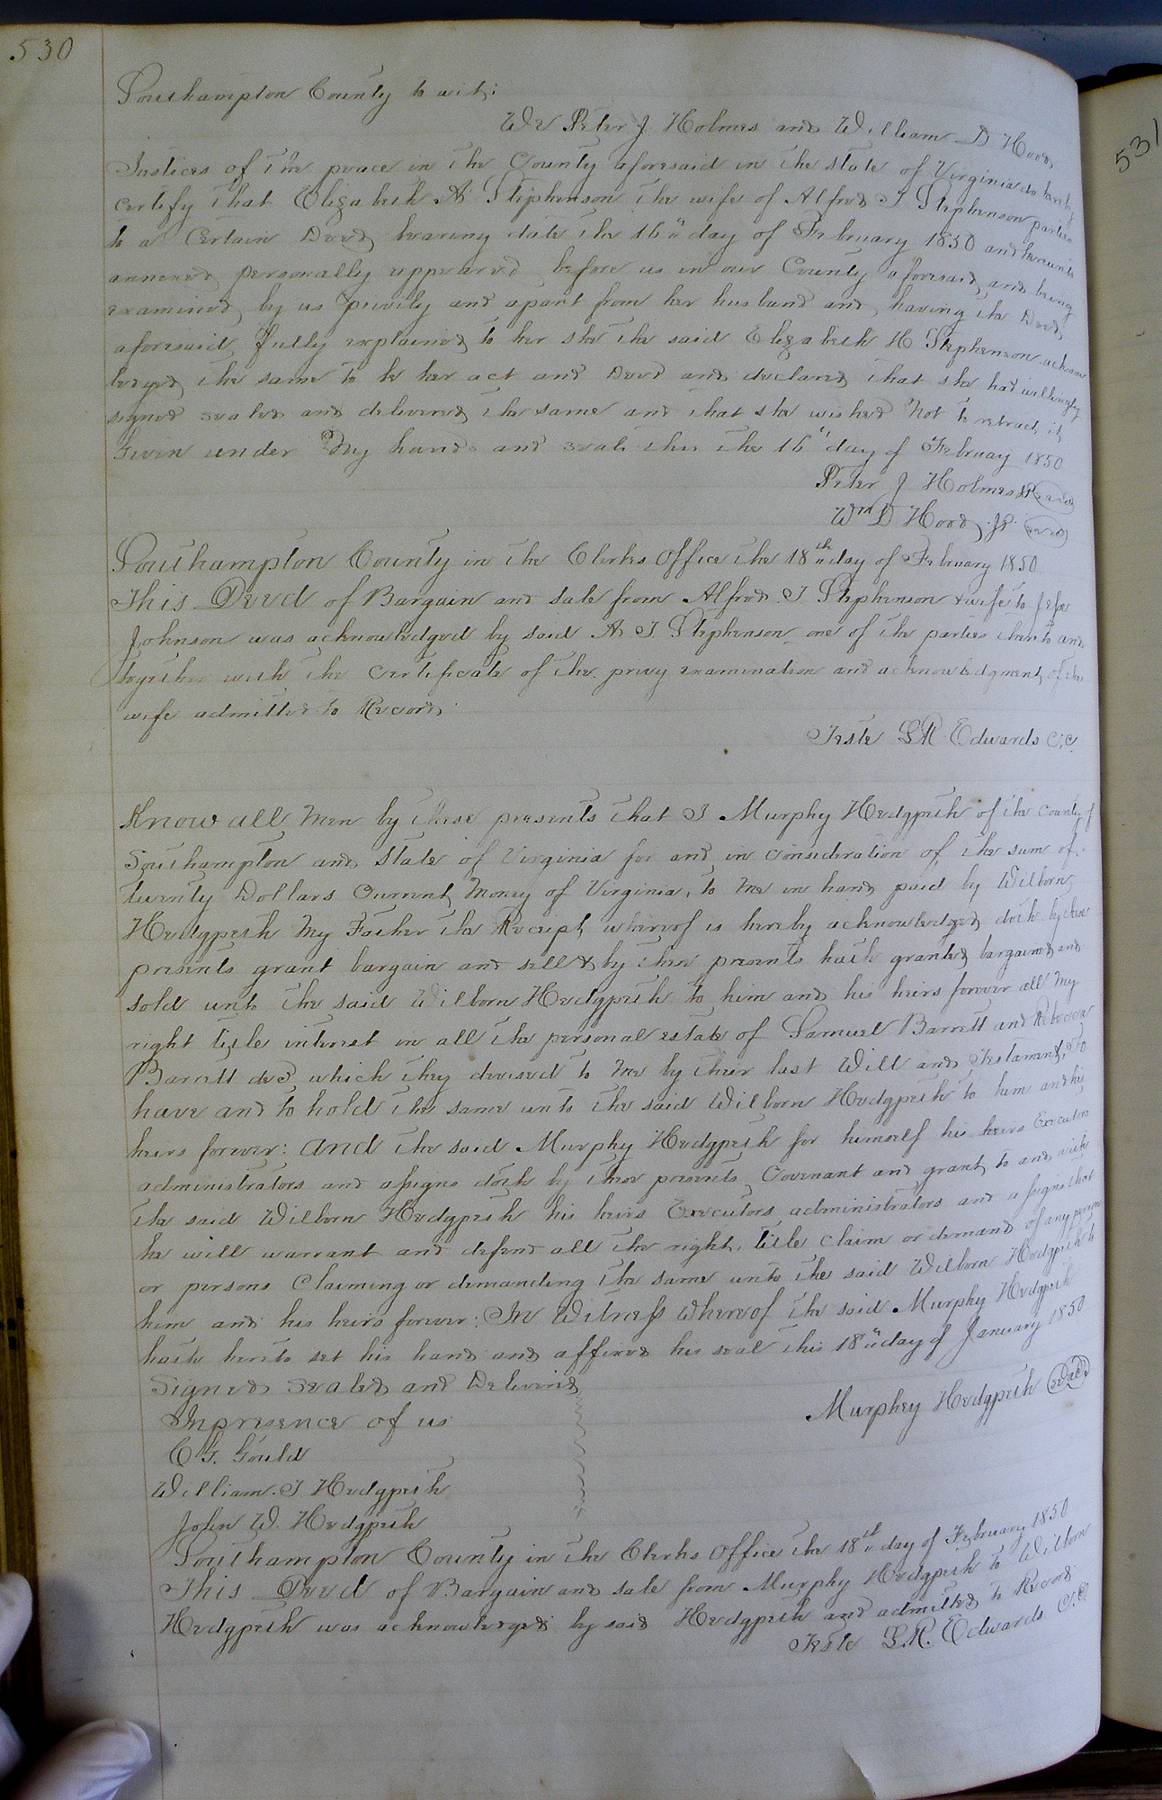 530
531
Southampton County to wit:
We Peter J Holmes and William D Hood
Justices of the peace in the County aforesaid in the state of Virginia do hereby
certify that Elizabeth H Stephenson the wife of Alfred T Stephenson parties
to a Certain Deed bearing date the 16" day of February 1850 and hereunto
annexed personally appeared before us in our County aforesaid and being
examined by us privily and apart from her husband and having the Deed
aforesaid fully explained to her she the said Elizabeth H Stephenson acknow
ledged the same to be her act and Deed and declared that she had willingly
signed sealed and delivered the same and that she wished not to retract it
Given under My hands and seals this the 16" day of February 1850
Peter J Holmes
Wm D Hood JP. seal
Southampton County in the Clerks Office the 18th day of February 1850
This Deed of Bargain and Sale from Alfred T Stephenson & wife to
Johnson was acknowledged by said A. T. Stephenson one of the parties thereto and
together with the Certificate of the privy examination and acknowledgment of the
wife admitted to Record.
Teste L R Edwards C.C.
Know all Men by these presents that I Murphy Hedgpeth of the County of
Southampton and State of Virginia for and in Consideration of the sum of
twenty Dollars Current Money of Virginia, to Me in hand paid by Wilborn
Hedgpeth My Father the Receipt whereof is hereby acknowledged doth by these
presents grant bargain and sell & by these presents hath granted bargained and
sold unto the said Wilborn Hedgpeth to him and his heirs forever all My
right title interest in all the personal estate of Samuel Barrett and Rebecca
Barrett decd which they devised to Me by their last Will and Testament, To
have and to hold the same unto the said Wilborn Hedgpeth to him and his
heirs forever: and the said Murphy Hedgpeth for himself his heirs Executors
administrators and assigns doth by these presents Covenant and grant to and with
the said Wilborn Hedgpeth his heirs Executors administrators and assigns that
he will warrant and defend all the right, title claim or demand of any person
or persons Claiming or demanding the same unto the said Wilborn Hedgpeth to
him and his heirs forever: In Witness Whereof the said Murphy Hedgpeth
hath hereto set his hand and affixed his seal this 18" day of January 1850
Signed Sealed and Delivered
In presence of us
Murphey Hedgpeth Seal
C G. Gould
William. T Hedgpeth
John W. Hedgpeth
Southampton County in the Clerks Office the 18th day of February 1850
This Deed of Bargain and Sale from Murphy Hedgpeth to Wilborn
Hedgpeth was acknowledged by said Hedgpeth and admitted to Record
Teste L R. Edwards C.C.